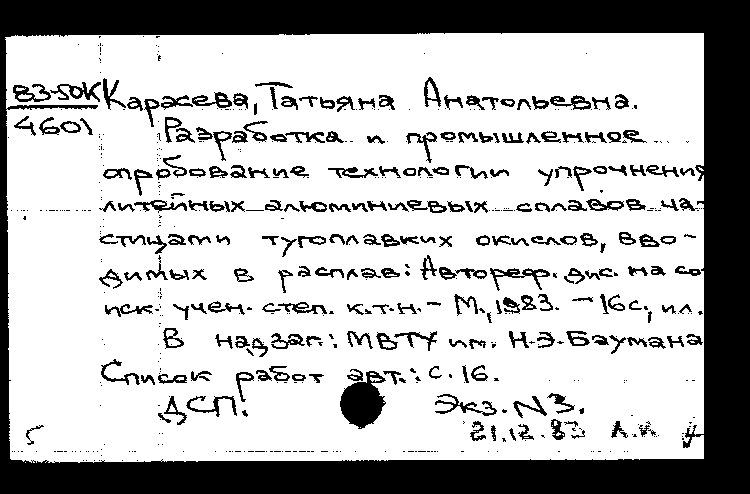 83-50К Карасева, Татьяна Анатольевна.
4601 Разработка и промышленное
опробование технологии упрочнения
литейных алюминиевых сплавов ча-
стицами тугоплавких окислов, вво-
димых в расплав: Автореф. дис. на со-
иск. учен. степ. к.т.н. - М., 1983. - 16 с., ил.
В надзаг.: МВТУ им. Н.Э. Баумана
Список работ авт.: с. 16.
ДСП. Экз. N3.
5 21.12.83 А.К